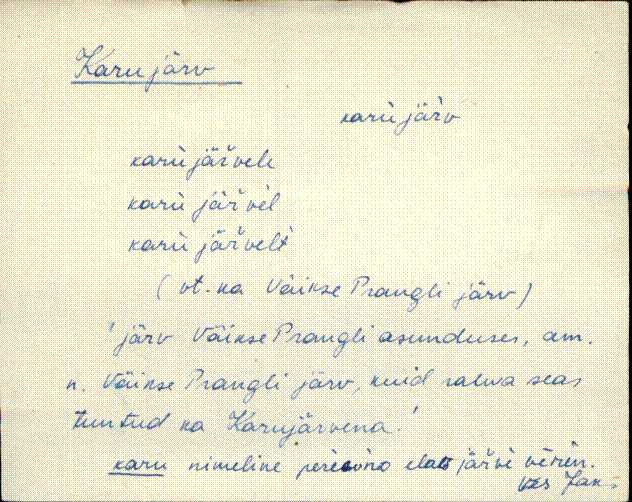 Karujärv
karù jäř̀v
karù jäřvele
karù jäřvèl
karù jäřvelt
(vt. ka Väikse Prangli järv)
'järv Väikse Prangli asunduses, am.
n. Väikse Prangli järv, kuid rahva seas
tuntud ka Karujärvena.'
karu nimeline